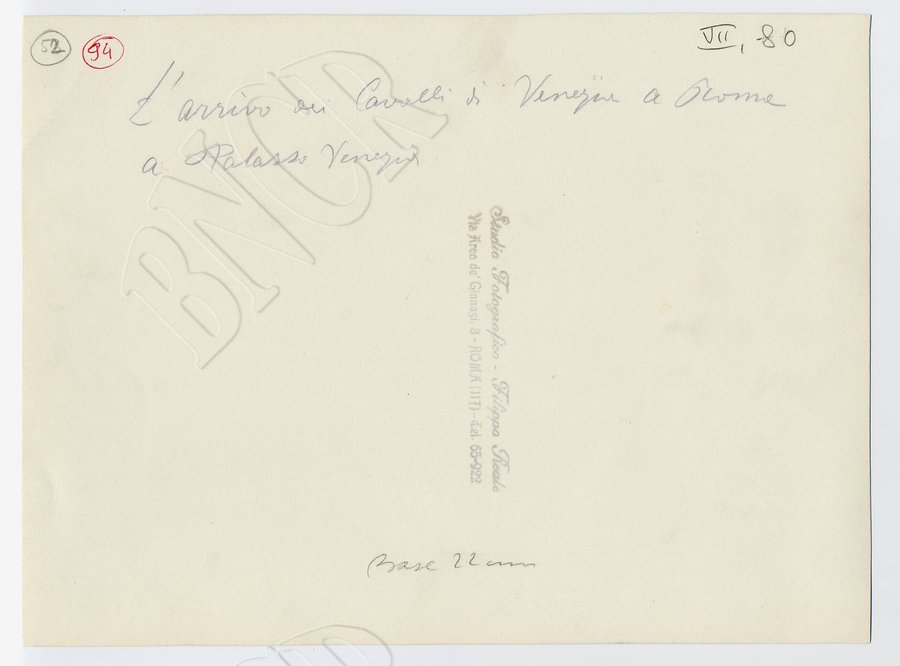 52
94
VII, 80
L'arrivo dei Cavalli di Venezia a Roma
a Palazzo Venezia
BNCR
Studio Fotografico - Filippo Reale
Via Arco de' Ginnasi, 3 - ROMA (117) - tel. 65-922
Base 22 cm